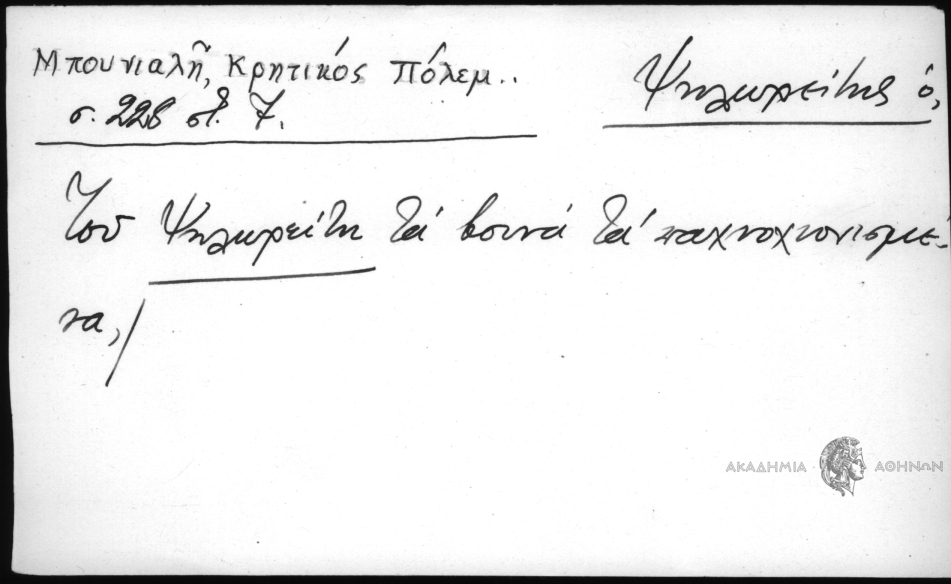 Μπουνιαλῆ, Κρητικός Πόλεμ..
σ. 228 στ. 7.
Ψηλωρείτης ὁ,
Τοῦ Ψηλωρείτη τά βουνά τά παχνοχιονισμέ-
να,/
ΑΚΑΔΗΜΙΑ ΑΘΗΝΩΝ